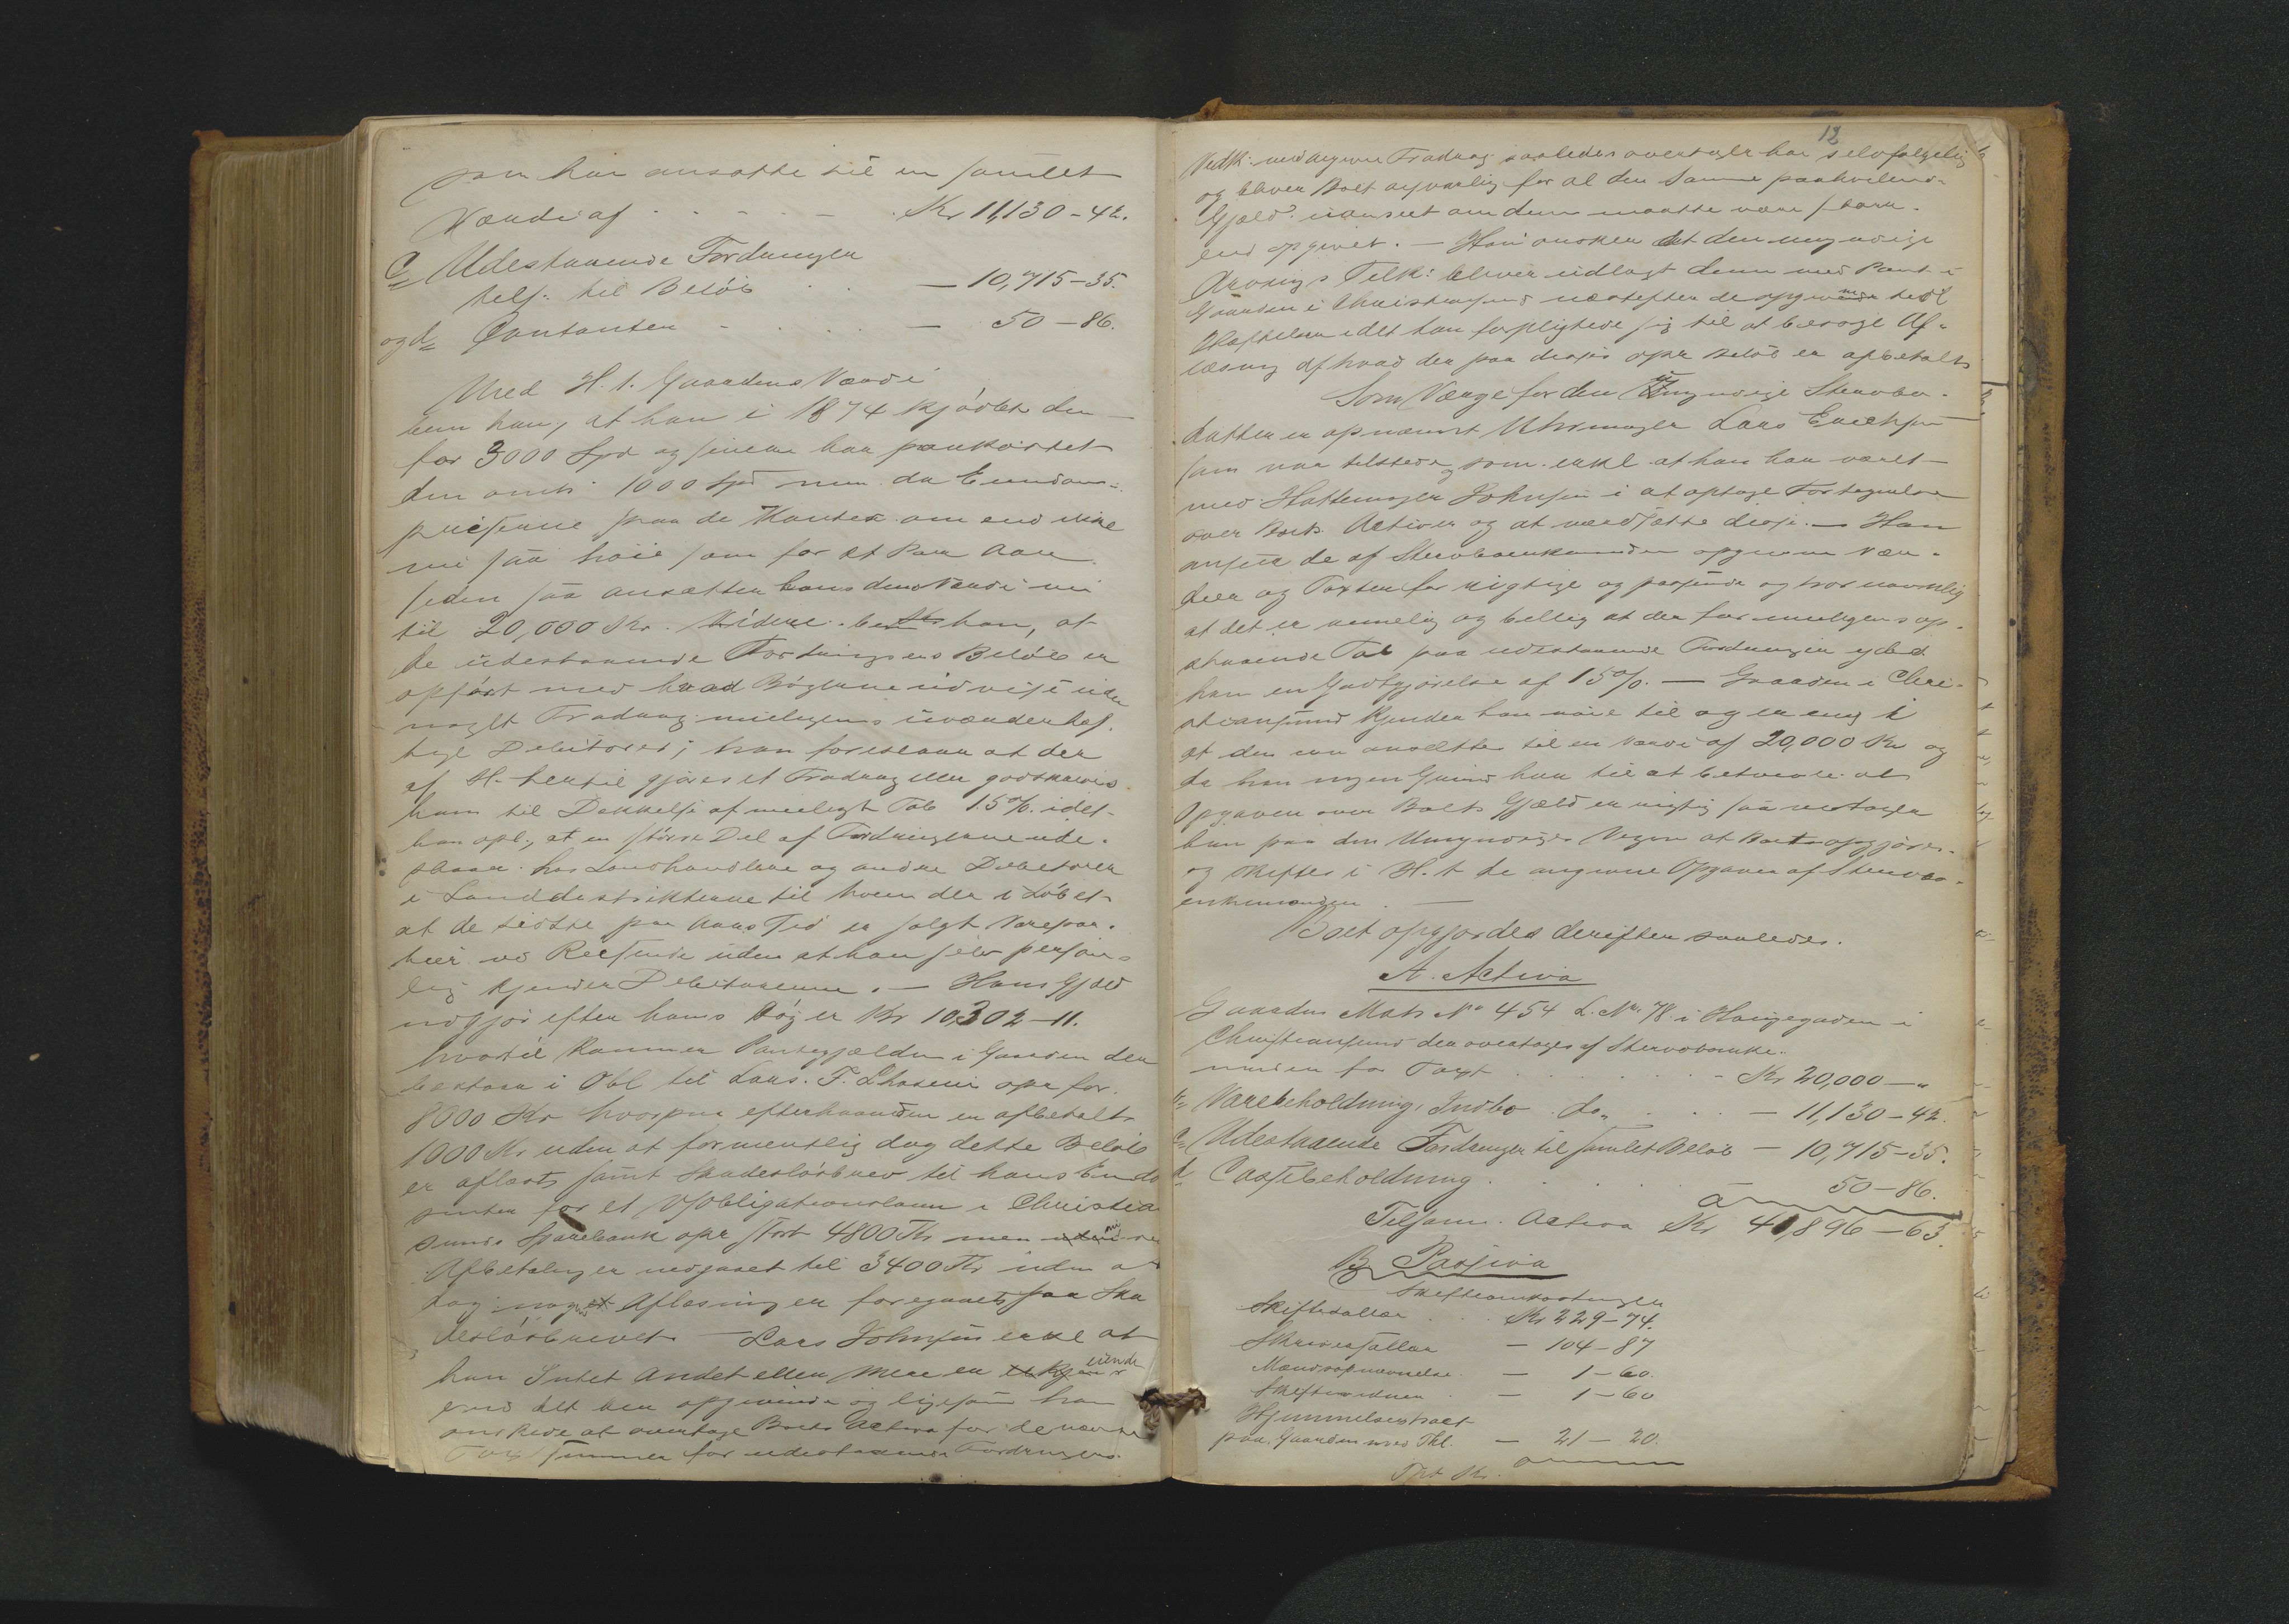 som han ansatte til en samlet
Værdi af - - - - - Kr 11,130-42.
c, Udestaaende Fordringer
tils. til Beløb - - — 10,715-35.
og d, Contanter - - - — 50-86.
Med H. t. Gaardens Værdi
bem han, at han i 1874 kjøbte den
for 3000 Spd og senere har paakostet
den omtr 1000 Spd men da Eiendoms-
priserne paa de Kanter om end ikke
nu saa høie som for et Par Aar
siden saa ansætter hans dens Værdi nu
til 20,000 Kr. Videre bem han, at
de udestaaende Fordringers Beløb er
opført med hvad Bøgerne udvise uden
noget Fradrag muligens uvæderhef-
tige Debitorer; han foreslaar at der
af H. hertil gjøres et Fradrag eller godskrives
ham til Dækkelse af muligt Tab 15%. idet
han opl., at en større Del af Fordringerne ude-
staar hos Landhandlere og andre Debitorer
i Landdistrikterne til hvem der i Løbet
af de sidste par Aars Tid er solgt Varepar-
tier ved Reisende uden at han selv person-
lig kjender Debitorerne. — Hans Gjæld
udgjør efter hans Bøger Kr 10,302-11.
hvortil kommer Pantegjælden i Gaarden den
bestaar i Obl til Lars. F. opr for
8000 Kr hvorpaa efterhaanden er afbetalt
1000 Kr uden at formentlig dog dette Beløb
er aflæst samt Skadesløsbrev til hans
for et Obligationslaan i Christia
sunds Sparebank opr stort 4800 Kr men ved
Afbetalinger nedgaaet til 3400 Kr uden at
dog nogen Aflæsning er foregaaet paa Ska
desløsbrevet — Lars Johnsen erkl at
han Intet Andet eller Mere er eiende
end det her opgivne og ligesom han
ønskede at overtage Boets Activa for de nævnte
Taxtsummer for udestaaende Fordringers
12
Vedk: med angivne Fradrag saaledes overtager han selvfølgelig
og bliver Boet ansvarlig for al den Samme paahvilende
Gjæld uanseet om denne maatte være større
end opgivet. — Han ønsker at den umyndige
Arvings Tilk: bliver udlagt denne med Pant i
Gaarden i Christiansund næstefter de opgivne
Heftelser idet han forpligtede sig til at besørge Af-
læsning af hvad der paa disses opr Beløb er afbetalt
Som Værge for den umyndige Stervbo-
datter er opnævnt Uhrmager Lars Erichsen
som var tilstede og som erkl at han har været
med Hattemager Johnsen i at optage Fortegnelse
over Boets Activer og at værdsætte disse. — Han
anser de af Stervboenkemanden opgivne Vær-
dier og Taxter for rigtige og passende og tror navnlig
at det er rimelig og billig at der for muligens op-
staaende Tab paa udestaaende Fordringer ydes
ham en Godtgjørelse af 15%. — Gaarden i Chri-
stiansund kjender han nøie til og er enig i
at den kan ansættes til en Værdi af 20,000 Kr og
da han ingen Grund har til at betvivle at
Opgaven over Boets Gjæld er rigtig saa vedtager
han paa den Umyndiges Vegne at Boet opgjøres
og skiftes i H. t de angivne Opgaver af Stervbo-
enkemanden. —
Boet opgjordes derefter saaledes.
A. Activa
Gaarden Matr No 454 L. Nr. 78 i Haugegaden i
Christiansund der overtages af Stervboenke-
manden for Taxt - - - - Kr 20,000 — "
b, Varebeholdning, Indbo do. - - - — 11,130-42.
c, Udestaaende Fordringer til samlet Beløb — 10,715-35.
d, Cassebeholdning - - - - 50-86.
Tilsam. Activa Kr 41,896-63.
B. Passiva
Skifteomkostninger
Skiftesallar - - Kr 229-74.
Skriversallar — 104-87
Mændsopnævnelse — 1-60.
— 1-60
Hjemmelsextract
paa Gaarden med Thl. — 21-20.
Trsp Kr.